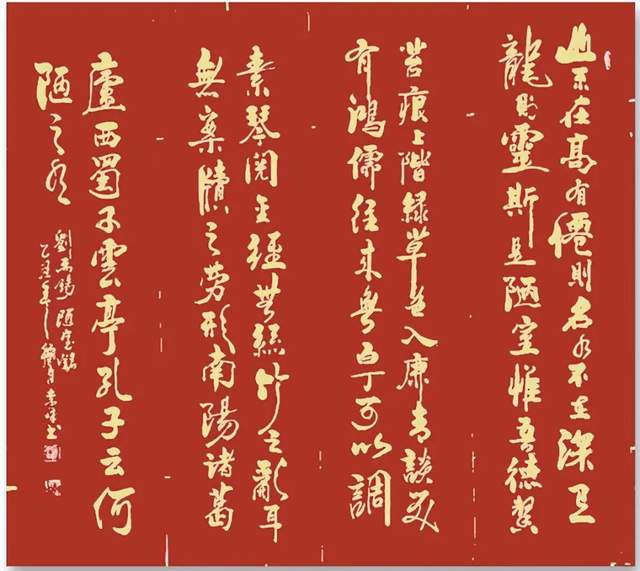 山不在高有僊則名水不在深有
龍則靈斯是陋室惟吾德馨
苔痕上階緑草色入廉青談笑
有鴻儒往來無白丁可以調
素琴閱金經無絲竹之亂耳
無案牘之勞形南陽諸葛
廬西蜀子雲亭孔子云何
陋之有
劉禹錫陋室銘